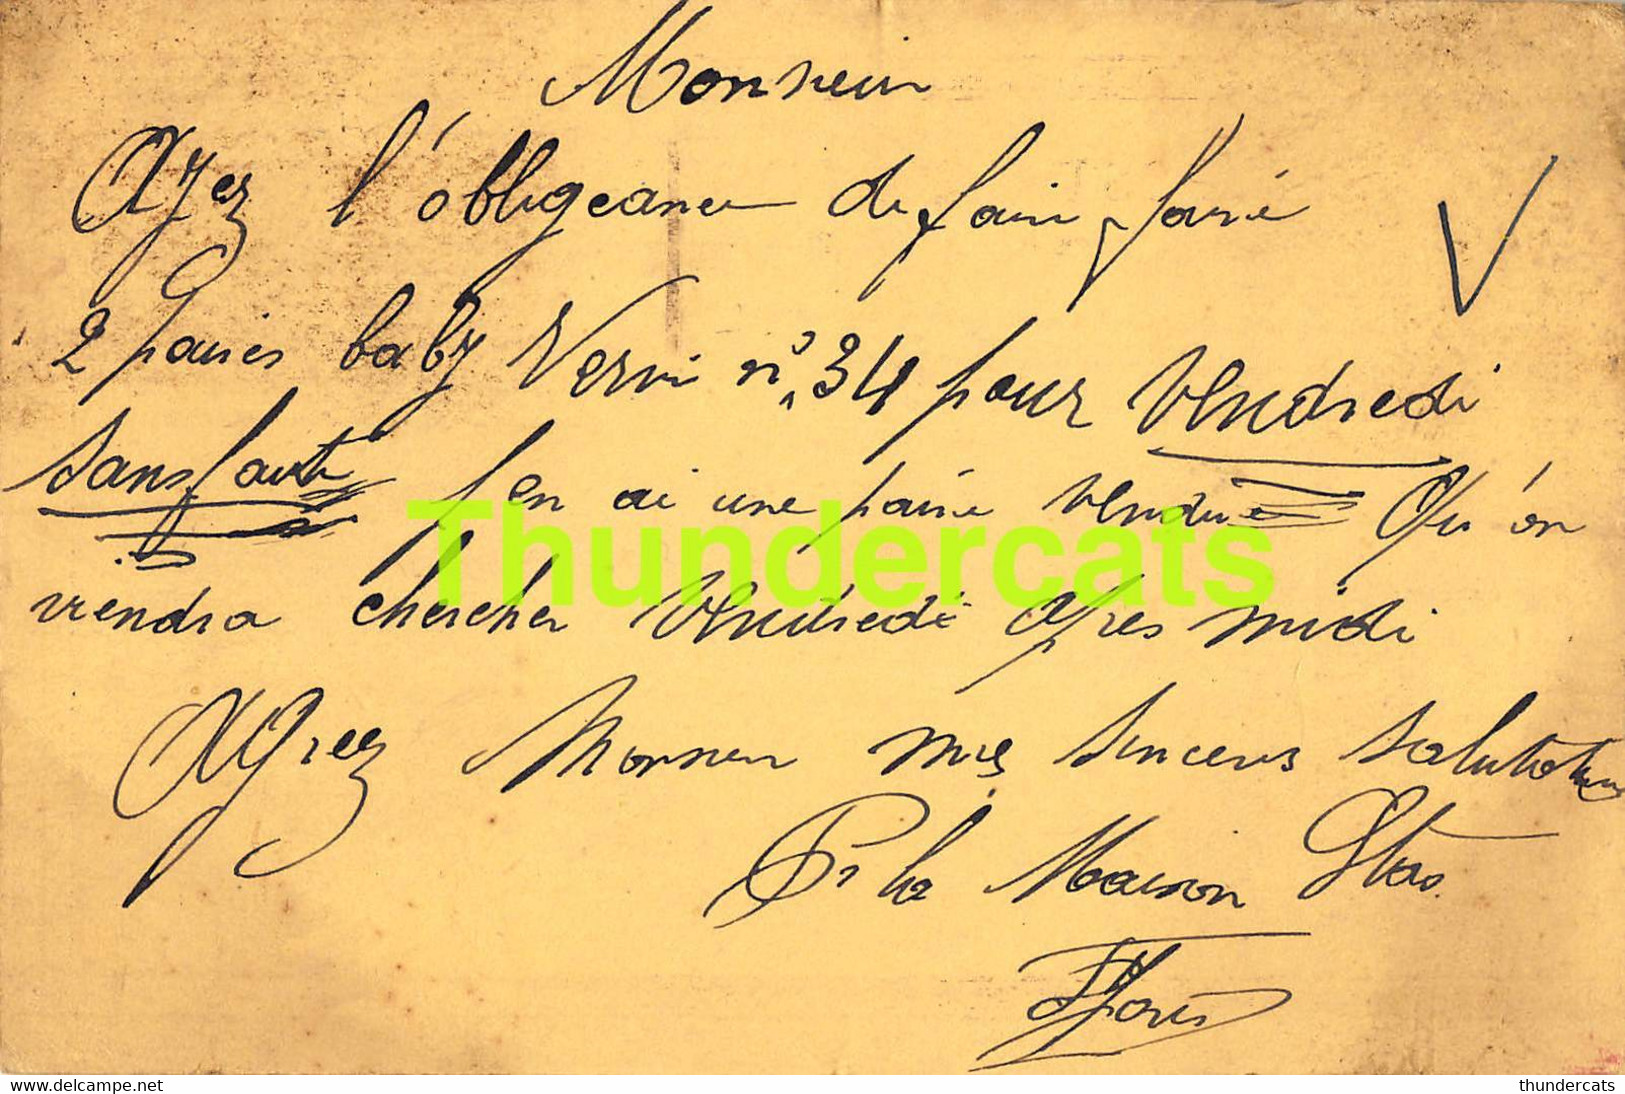 Monsieur
Ayez l'obligeance de faire faire
2 paires baby Verni n° 34 pour Vendredi
sans faute j'en ai une paire vendue Qu'on
viendra chercher Vendredi apres midi
Agreez Monsieur mes sinceres salutations
Pr la Maison Stas
Thundercats
delcampe.net
thundercats